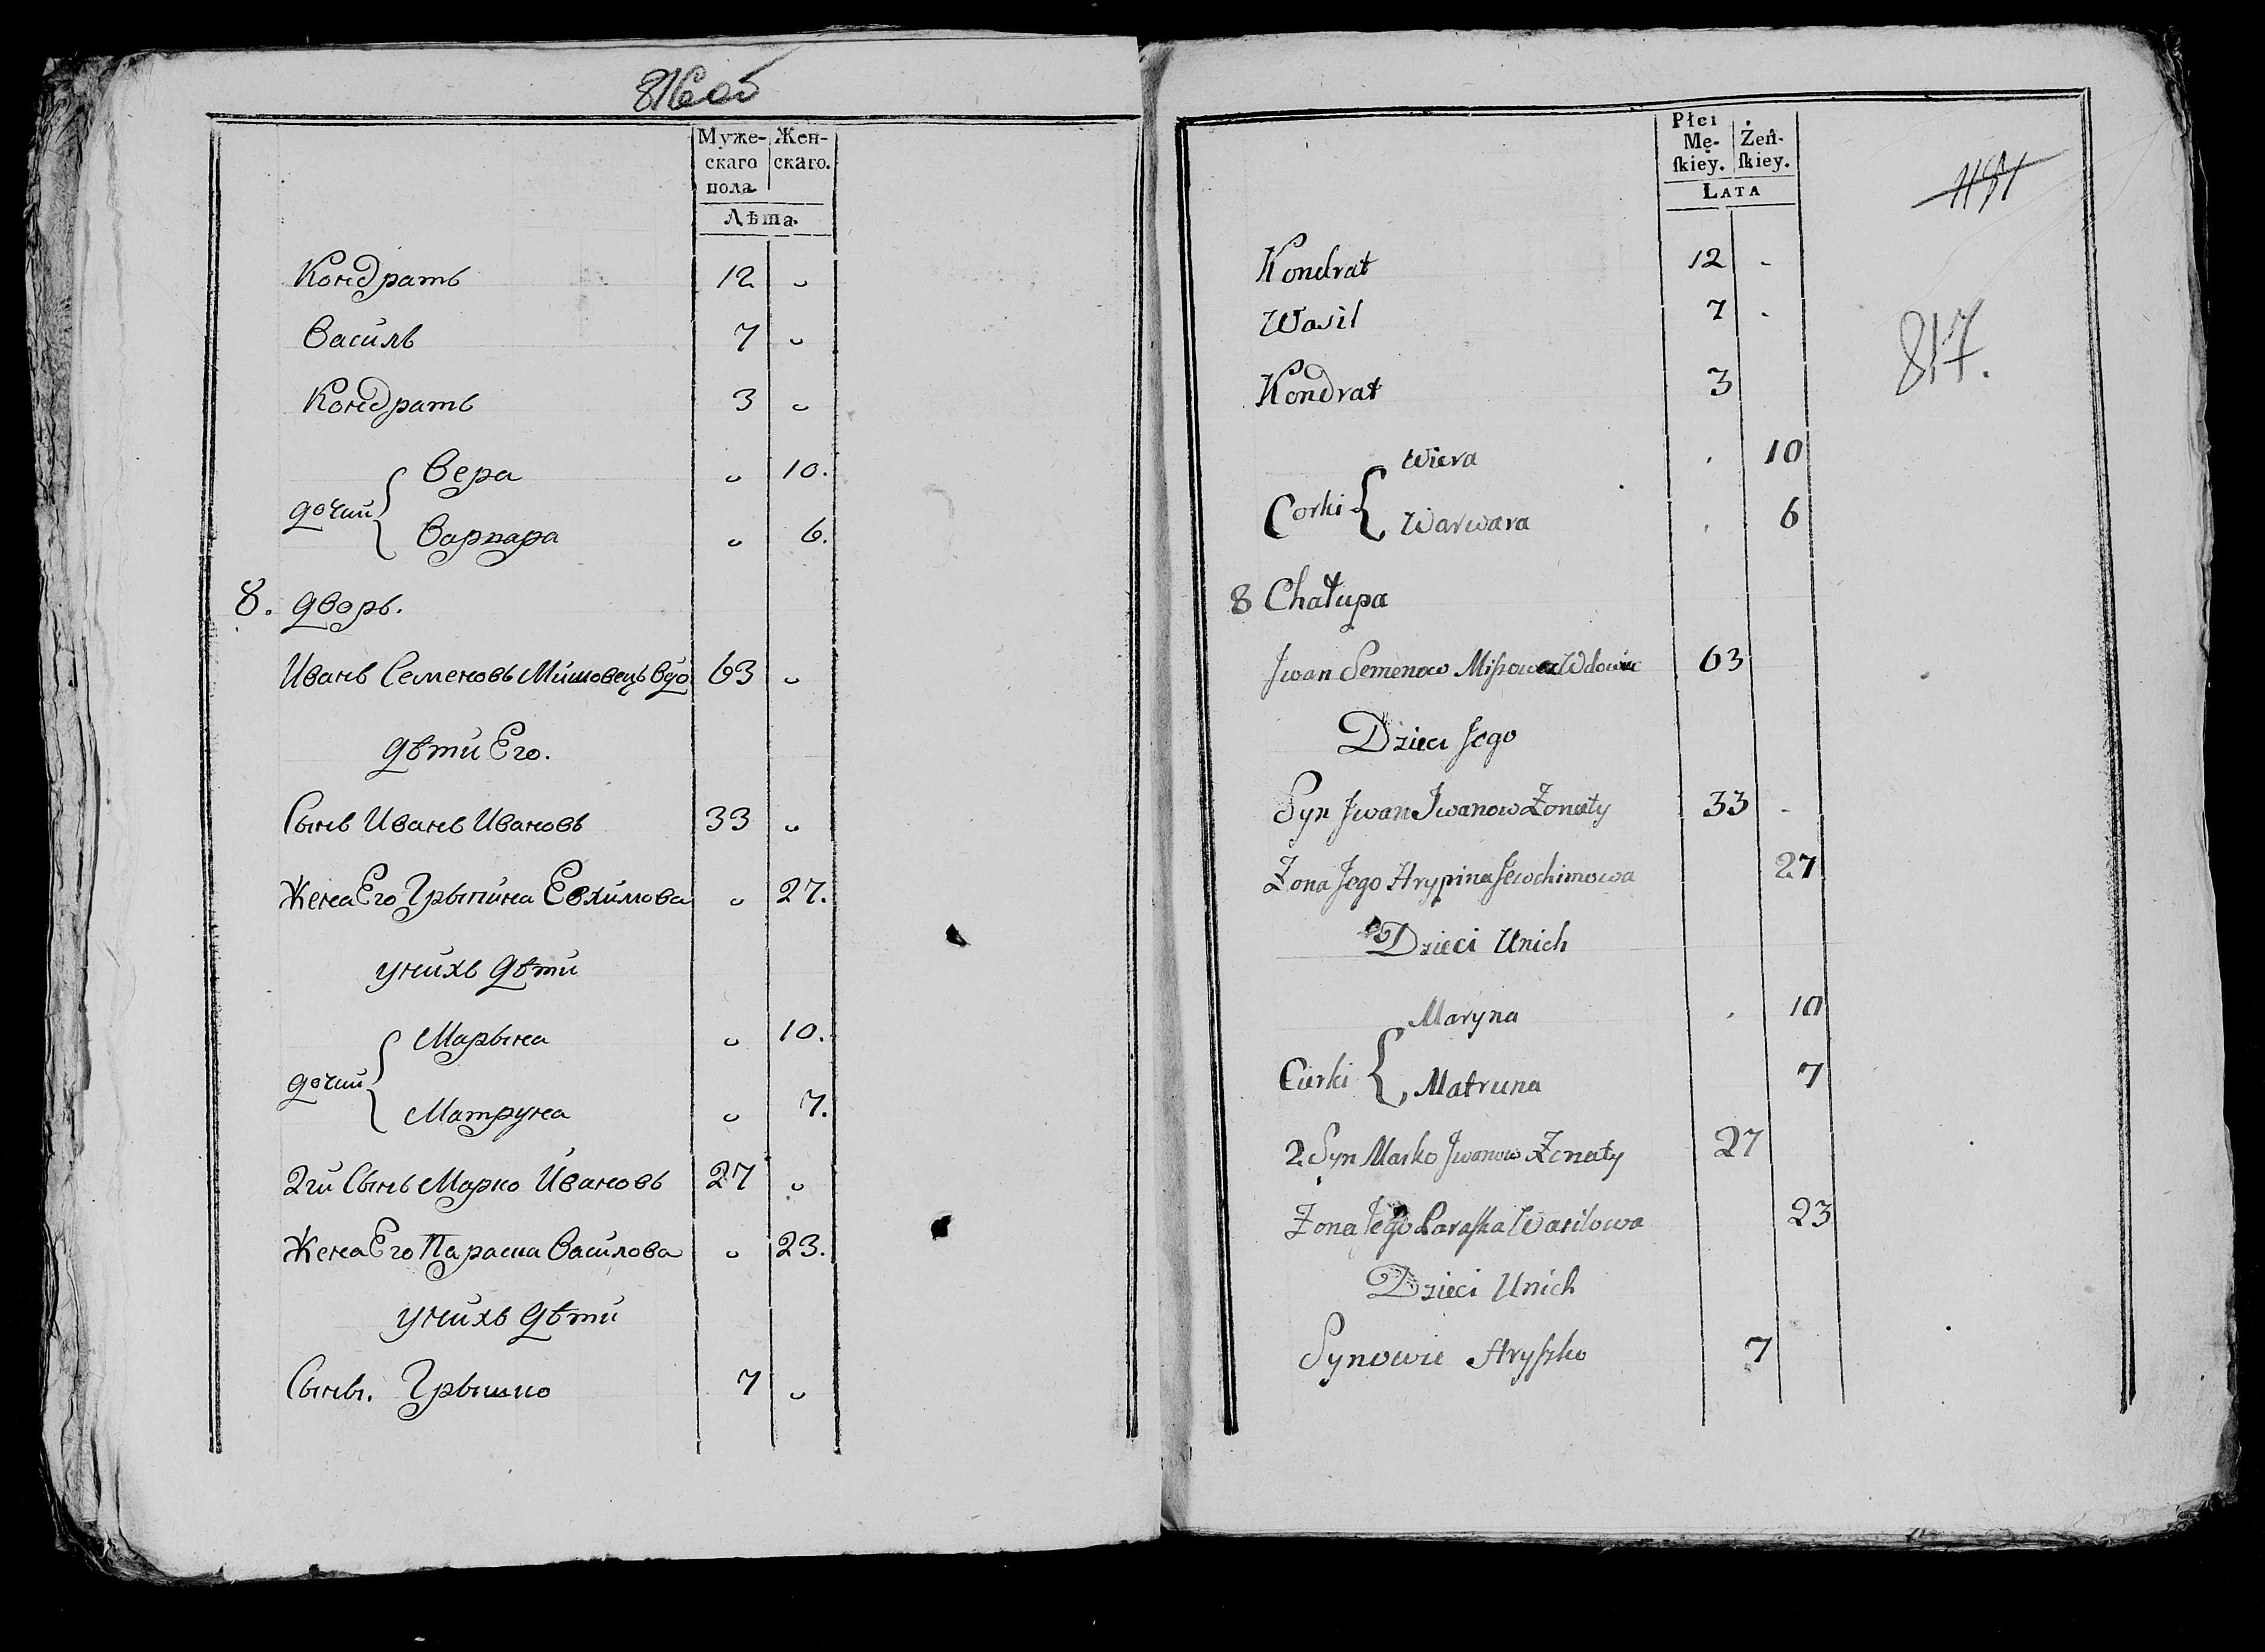 816 об
Муже- Жен-
скаго скаго.
пола
Лѣта.
Кондратъ 12
Василь 7
Кондратъ 3
Вера 10.
дочки
Варвара 6.
8. дворъ.
Иванъ Семеновъ Мишовецъ вдо 63
дѣти Его.
Сынъ Иванъ Ивановъ 33
Жена Его Грыпина Евхимова 27.
у нихъ дѣти
Марына 10.
дочки
Матруна 7.
2й Сынъ Марко Ивановъ 27
Жена Его Параска Василова 23.
у нихъ дѣти
Сыны. Грышко 7
Płci
Mę- Żeń-
ſkiey. ſkiey.
LATA
817.
Kondrat 12 -
Wasil 7
Kondrat 3
Wiera 10
Corki
Warwara 6
8 Chałupa
Jwan Semenow Wdowiec 63
Dzieci Jego
Syn Jwan Jwanow Żonaty 33 -
Żona Jego Hrypina Jewchimowa 27
Dzieci Unich
Maryna 10
Curki
Matruna 7
2 Syn Marko Jwanow Żonaty 27
Żona Jego Paraſka Wasilowa 23
Dzieci Unich
Synowie Hryſzko 7